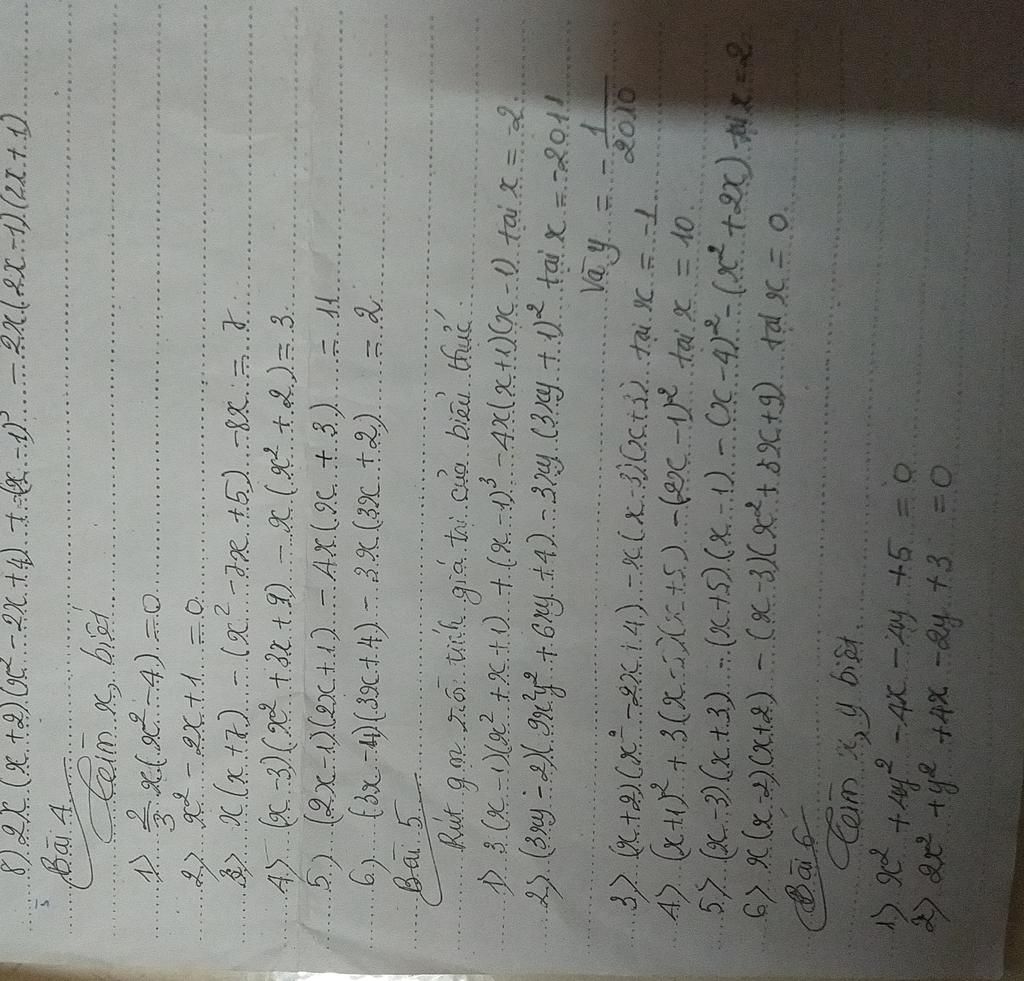 8) 2x(x+2)(x² - 2x + 4) + (x - 1)³ - 2x(2x - 1)(2x + 1)
Bài 4
Tìm x, biết
1) 2/3 x(x² - 4) = 0
2) x² - 2x + 1 = 0
3) x(x + 7) - (x² - 2x + 5) - 8x = 7
4) (x - 3)(x² + 3x + 9) - x(x² + 2) = 3
5) (2x - 1)(2x + 1) - 4x(x + 3) = 11
6) (3x - 4)(3x + 4) - 3x(3x + 2) = 2
Bài 5
Rút gọn rồi tính giá trị của biểu thức
1) 3(x - 1)(x² + x + 1) + (x - 1)³ - 4x(x + 1)(x - 1) tại x = -2
2) (3xy - 2)(9x²y² + 6xy + 4) - 3xy(3xy + 1)² tại x = -2011
Và y = - 1/2010
3) (x + 2)(x² - 2x + 4) - x(x - 3)(x + 3) tại x = -1
4) (x + 1)² + 3(x - 5)(x + 5) - (2x - 1)² tại x = 10
5) (x - 3)(x + 3) - (x + 5)(x - 1) - (x - 4)² - (x² + 2x) tại x = 2
6) x(x - 2)(x + 2) - (x - 3)(x² + 3x + 9) tại x = 0
Bài 6
Tìm x, y biết
1) x² + 4y² - 4x - 4y + 5 = 0
2) 2x² + y² + 4x - 2y + 3 = 0